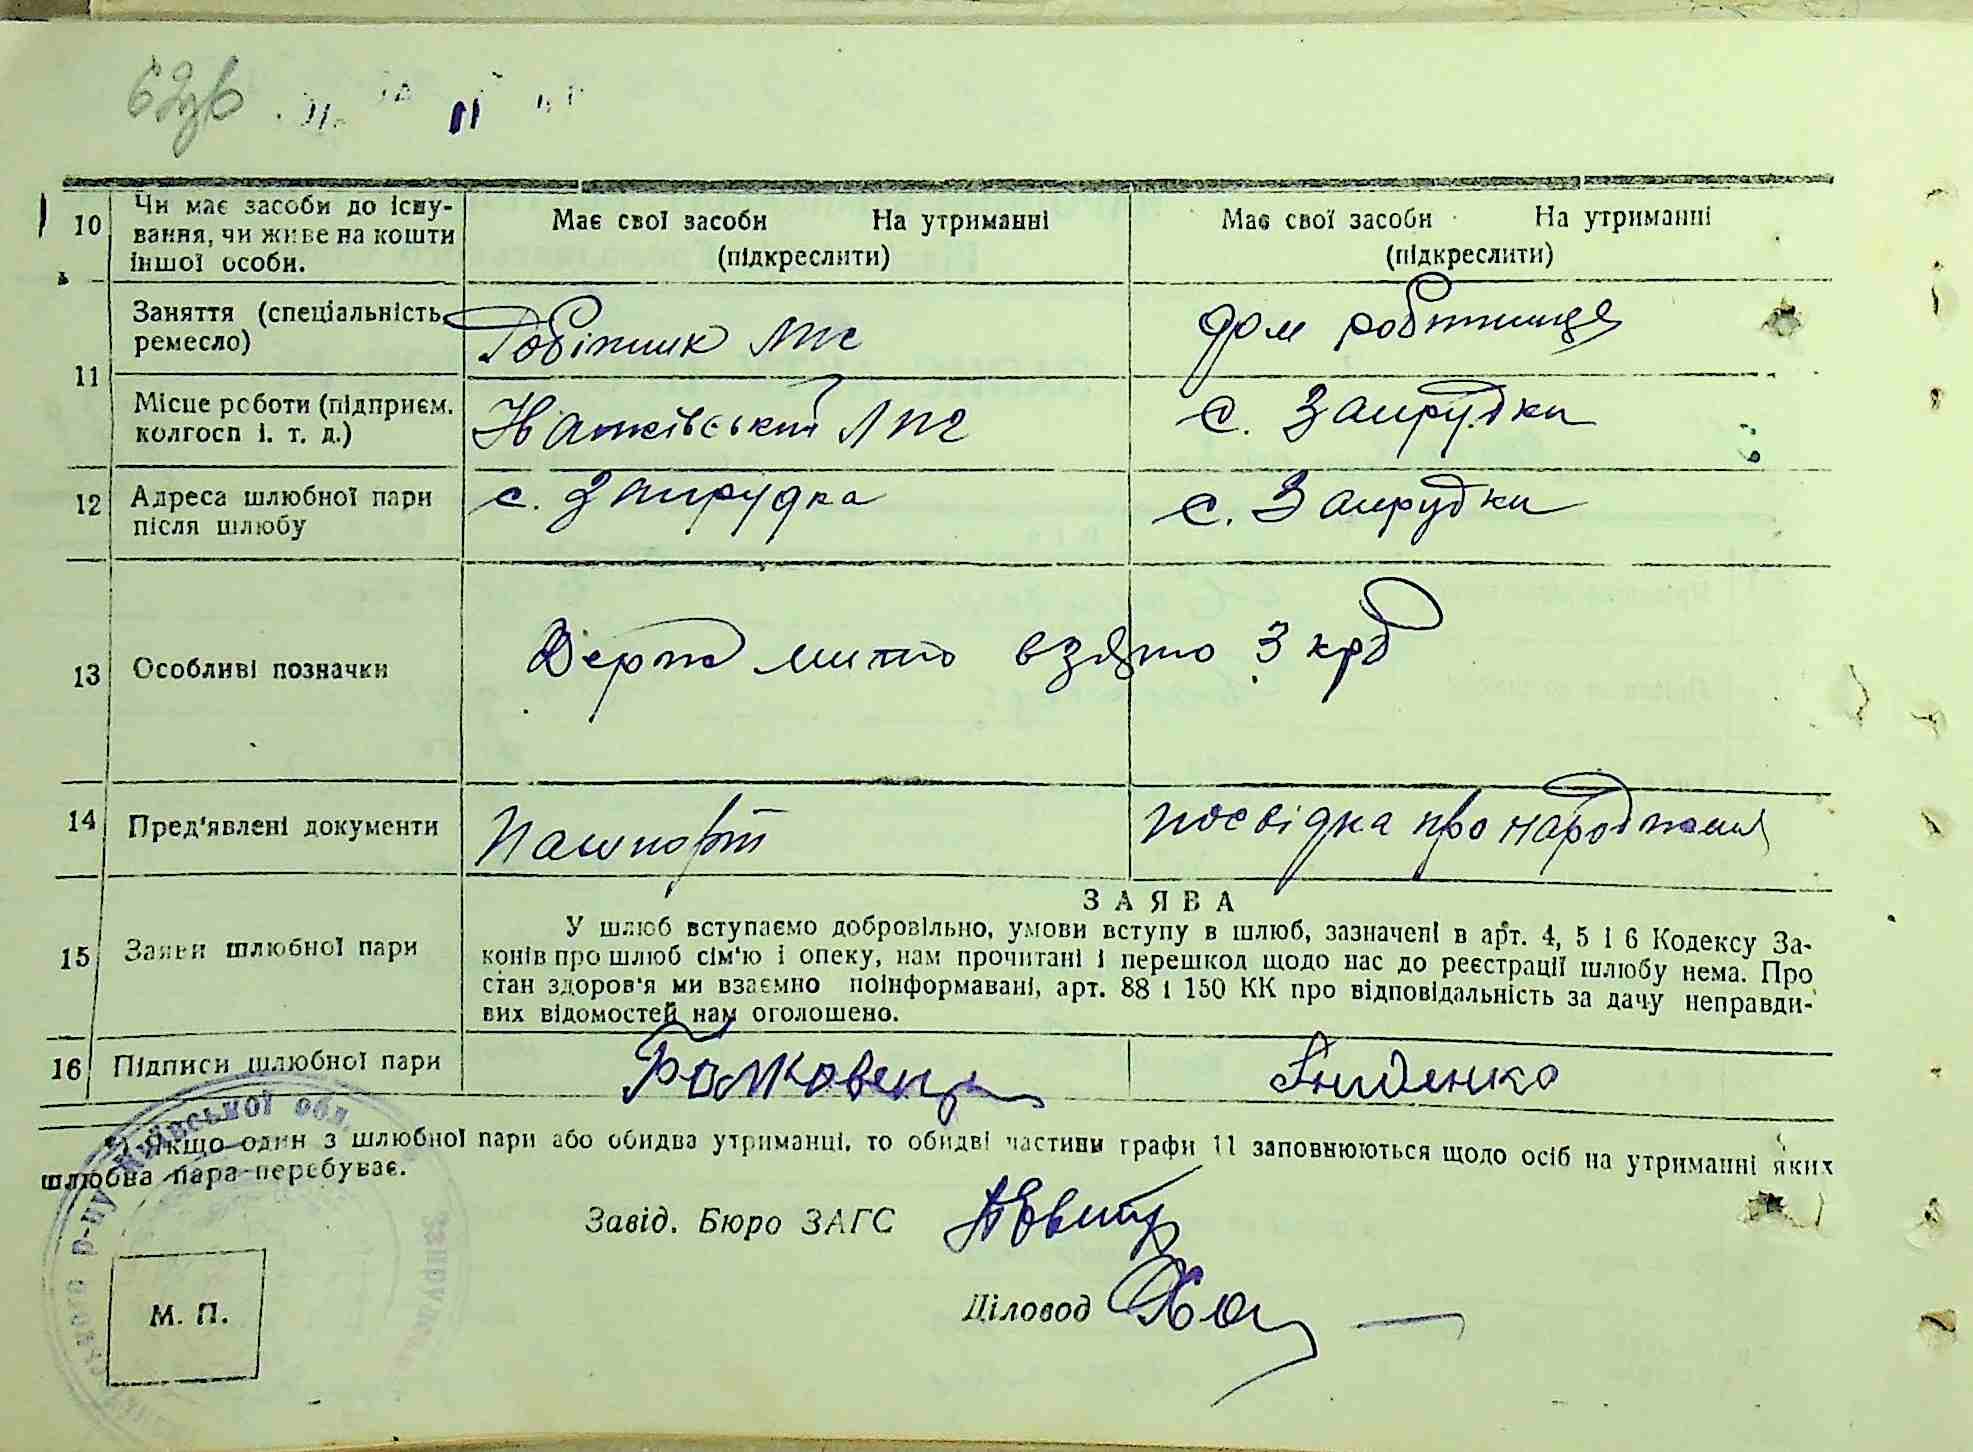 62зв
10 Чи має засоби до існу-
вання, чи живе на кошти
іншої особи.
Має свої засоби На утриманні
(підкреслити)
Має свої засоби На утриманні
(підкреслити)
11 Заняття (спеціальність,
ремесло)
Робітник МТС
дом робітниця
Місце роботи (підприєм.
колгосп і. т. д.)
МТС
с. Запрудки
12 Адреса шлюбної пари
після шлюбу
с. Запрудка
с. Запрудки
13 Особливі позначки
Держ мито взято 3 крб
14 Пред'явлені документи
Пашпорт
посвідка про народження
15 Заяви шлюбної пари
ЗАЯВА
У шлюб вступаємо добровільно, умови вступу в шлюб, зазначені в арт. 4, 5 і 6 Кодексу За-
конів про шлюб сім'ю і опеку, нам прочитані і перешкод щодо нас до реєстрації шлюбу нема. Про
стан здоров'я ми взаємно поінформавані, арт. 88 і 150 КК про відповідальність за дачу неправди-
вих відомостей нам оголошено.
16 Підписи шлюбної пари
*) Якщо один з шлюбної пари або обидва утриманці, то обидві частини графи 11 заповнюються щодо осіб на утриманні яких
шлюбна пара перебуває.
Завід. Бюро ЗАГС
Діловод
М. П.
р-ну Київської обл.